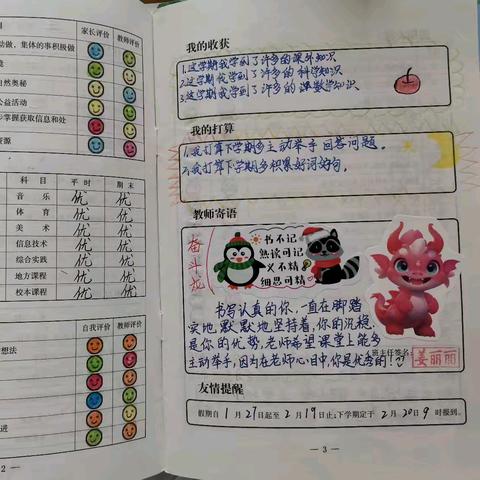 家长评价
教师评价
动做，集体的事积极做
自然奥秘
公益活动
步掌握获取信息和处
资源
科目
平时
期末
音乐
优
优
体育
优
优
美术
优
优
信息技术
优
优
综合实践
优
优
地方课程
优
优
校本课程
优
优
自我评价
教师评价
想法
进
2
我的收获
1.这学期我学到了许多的课外知识
2.这学期我学到了许多的科学知识
3.这学期我学到了许多的课数学知识
我的打算
1.我打算下学期多主动举手回答问题。
2.我打算下学期多积累好词好句。
教师寄语
奋斗龙
书不记
熟读可记
义不精
细思可精
书写认真的你，一直在脚踏
实地，默默地坚持着，你的沉稳
是你的优势，老师希望课堂上能多
主动举手，因为在老师心目中，你是优秀的！
班主任签名
姜丽丽
友情提醒
假期自1月27日起至2月19日止；下学期定于2月20日9时报到。
3